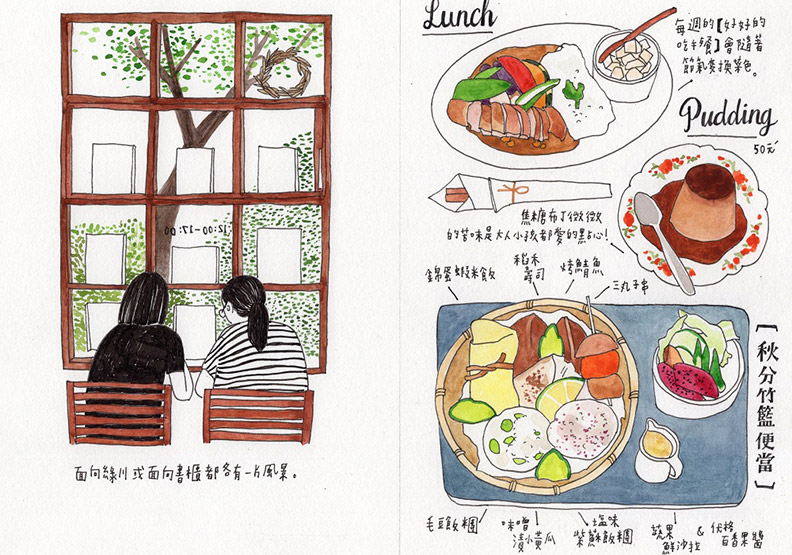 12:00-17:00
面向綠川或面向書櫃都各有一片風景。
Lunch
每週的【好好的
吃午餐】會隨著
節氣變換菜色。
Pudding
50元
焦糖布丁微微
的苦味是大人小孩都愛的點心!
錦蛋蝦米飯
稻禾
壽司
烤鯖魚
三丸子串
[秋分竹籃便當]
毛豆飯糰
味噌
漬小黃瓜
塩味
紫蘇飯糰
蔬果
鮮沙拉
&
優格
百香果醬